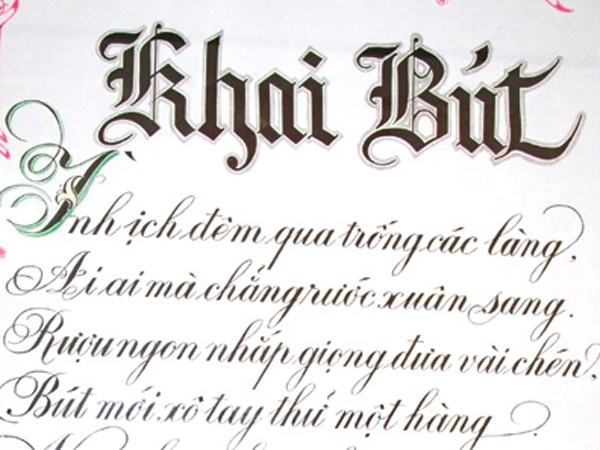 Khai Bút
Ình ịch đêm qua trống các làng,
Ai ai mà chẳng rước xuân sang.
Rượu ngon nhắp giọng đưa vài chén,
Bút mới xô tay thử một hàng